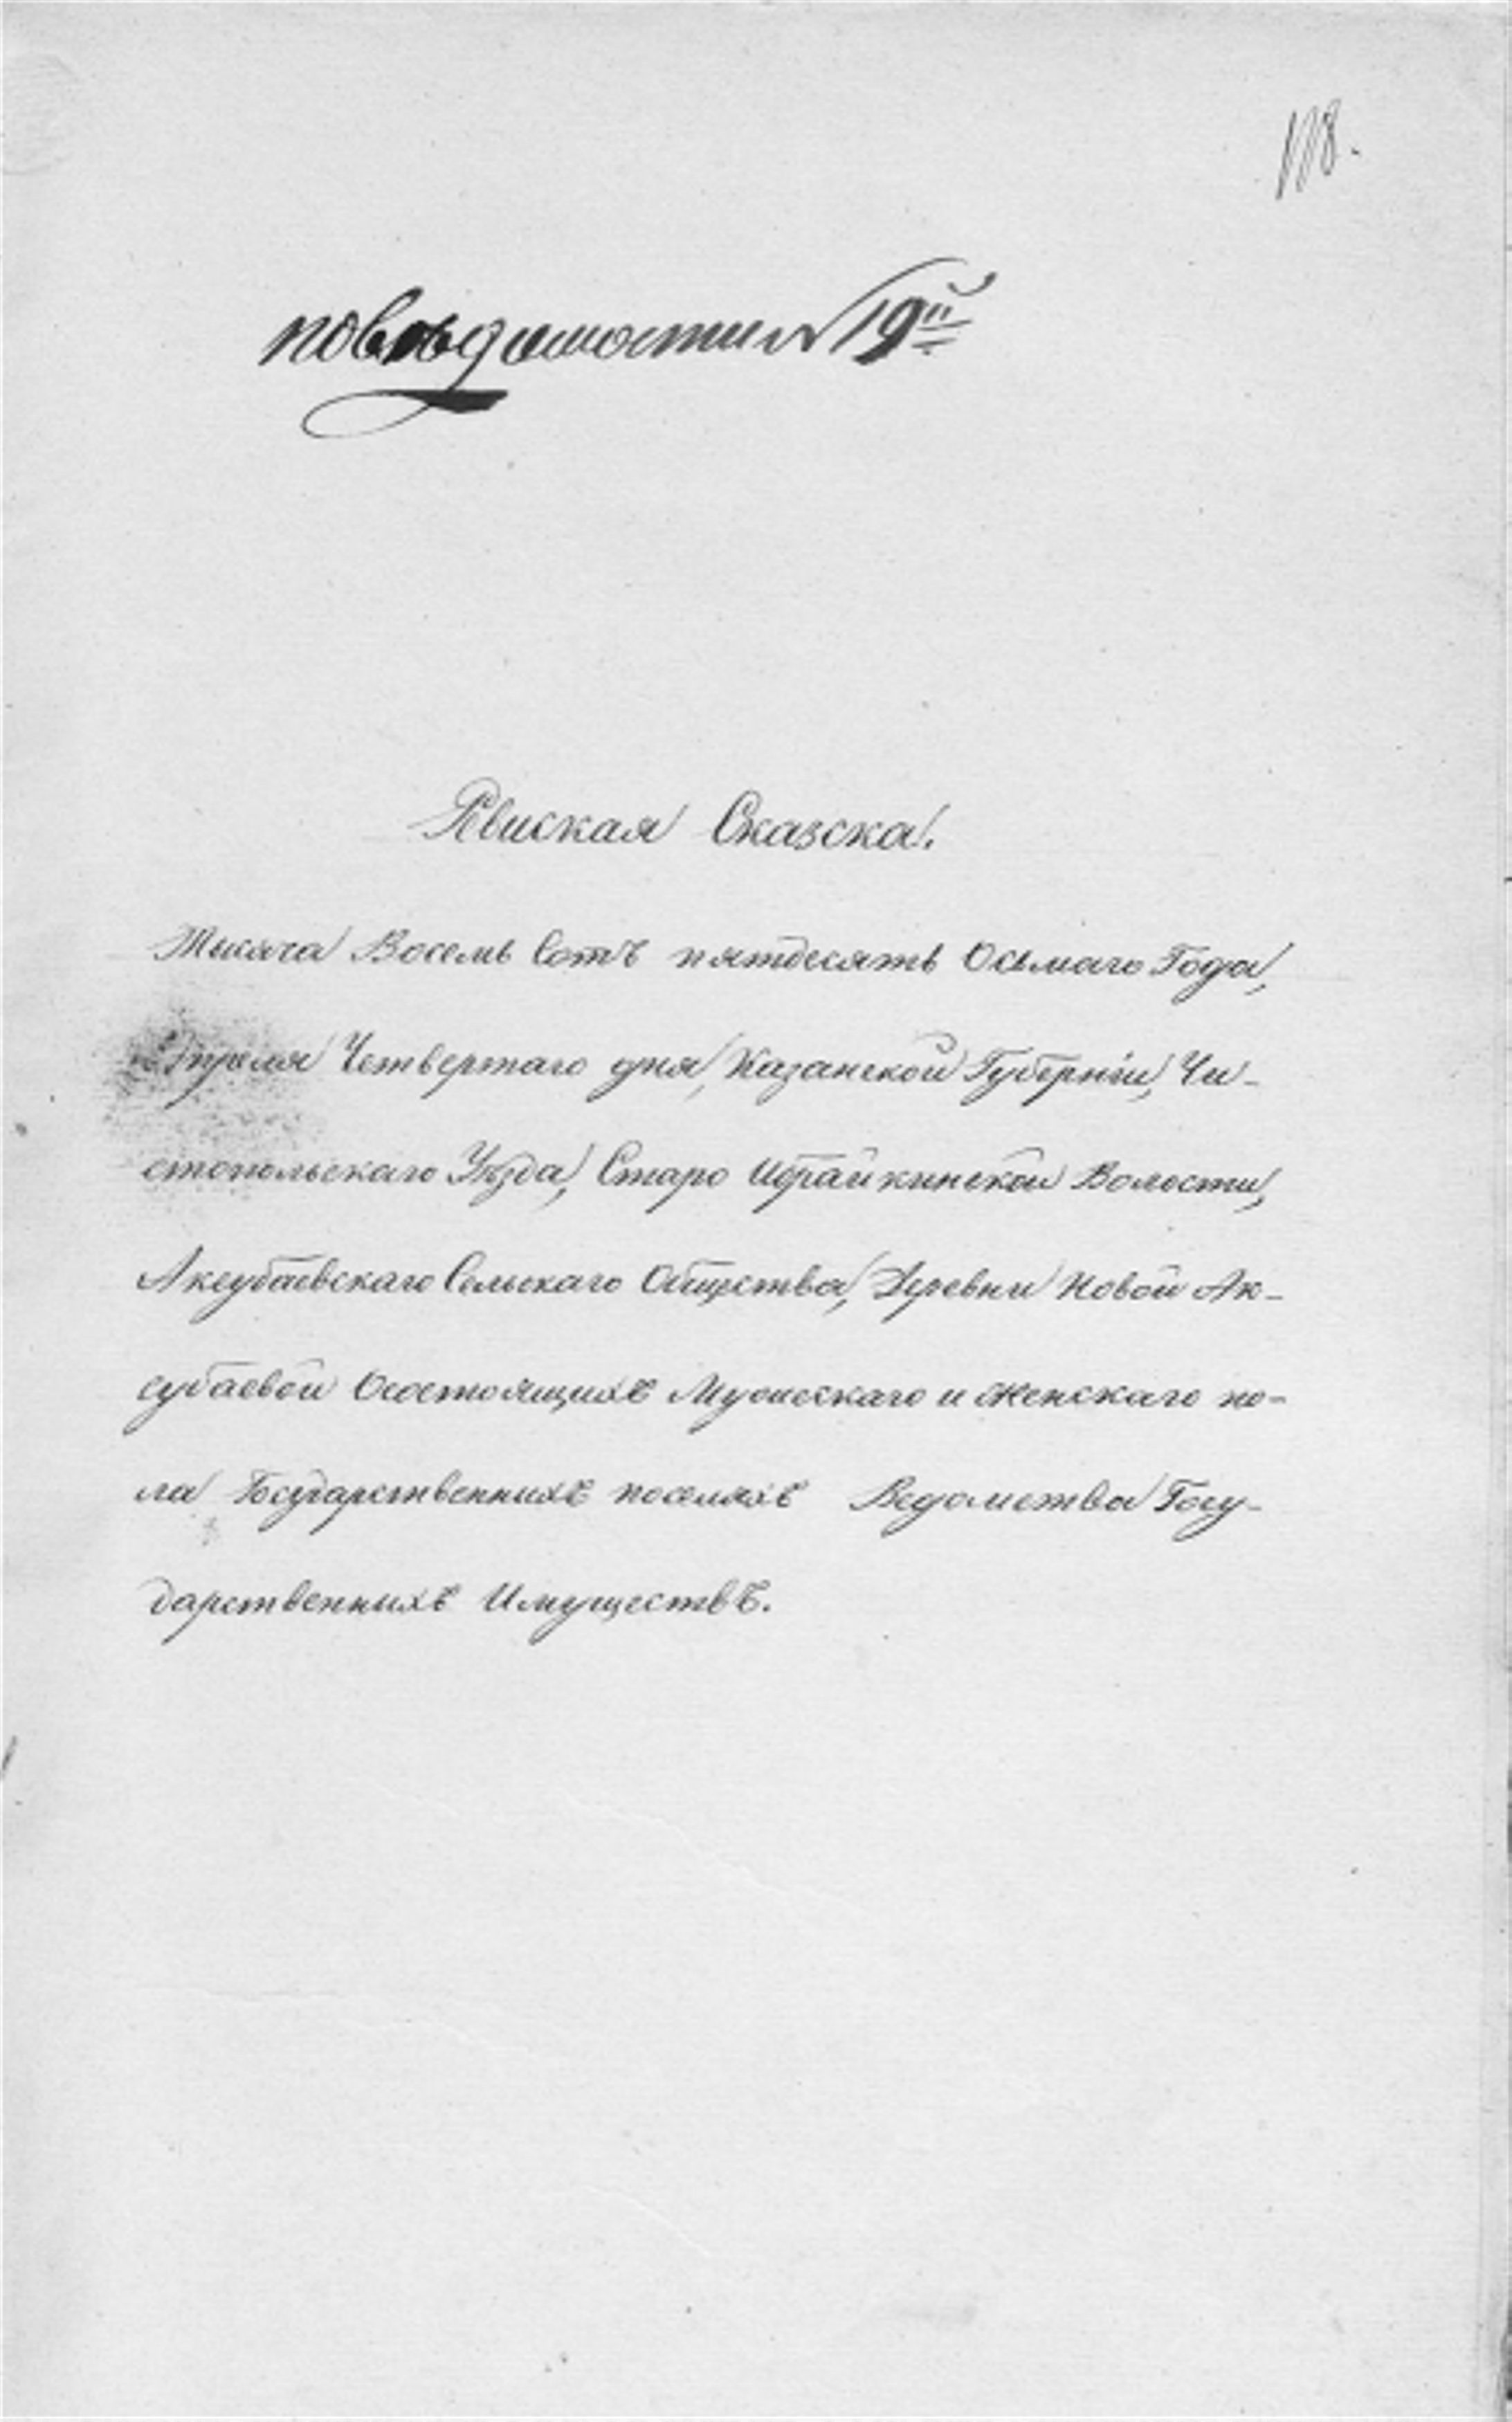 118.
по вѣдомости № 19й
Ревиская Сказска.
Тысяча Восемь Сотъ пятдесять Осьмаго Года,
Апреля Четвертаго дня, Казанской Губерніи, Чи-
стопольскаго Уѣзда, Старо Ибрайкинской Волости,
Аксубаевскаго Сельскаго Общества, Деревни Новой Ак-
субаевой О состоящихъ Мужескаго и Женскаго по-
ла Государственныхъ поселяхъ Ведомства Госу-
дарственныхъ Имуществъ.